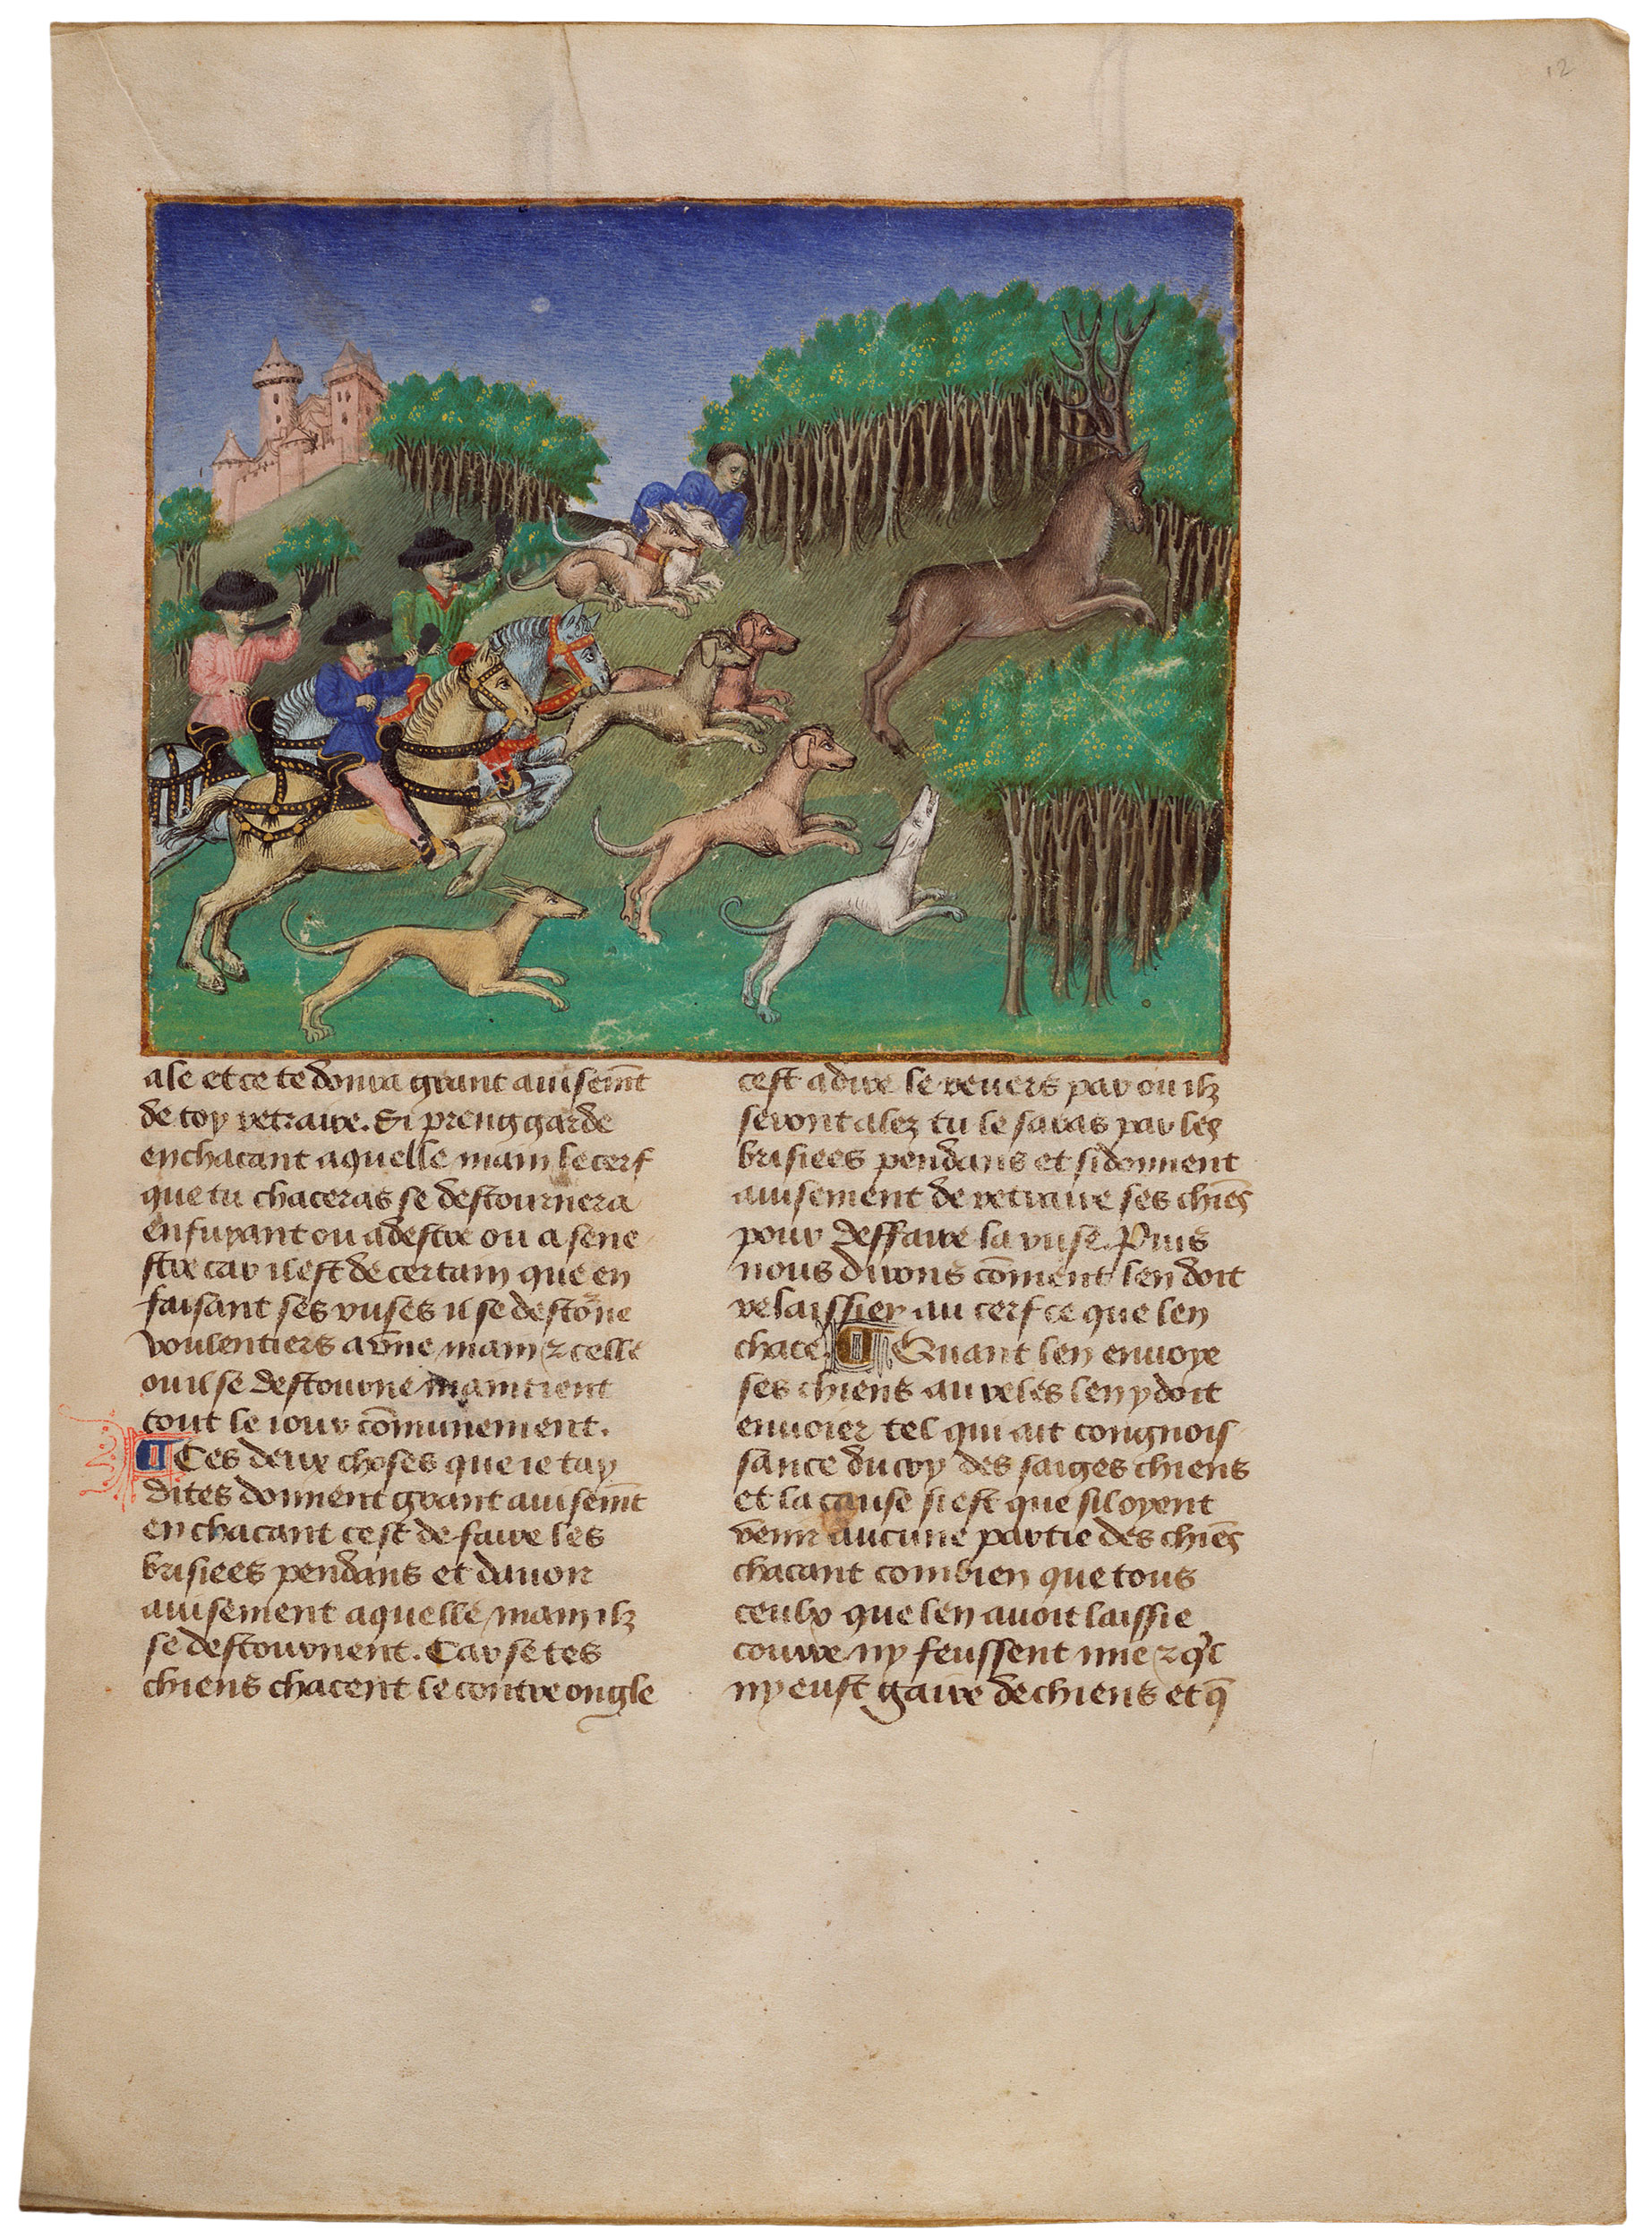 12
ale et ce te donra grant auisem̄t
de toy retraire. Si preng garde
en chacant a quelle main le cerf
que tu chaceras se destournera
en fuyant ou a destre ou a sene
stre car il est de certain que en
faisant ses ruses il se destōne
voulentiers a vne main ⁊ celle
ou il se destourne maintient
tout le iour cōmunement.
Ces deux choses que ie tay
dites donnent grant auisem̄t
en chacant cest de faire les
brisiees pendans et dauoir
auisement a quelle main ilz
se destournent. Car se tes
chiens chacent le contre ongle
cest a dire le reuers par ou ilz
seront alez tu le saras par les
brisiees pendans et si donnent
auisement de retraire ses chiēs
pour deffaire la ruse. Puis
nous dirons cōment len doit
relaissier au cerf ce que len
chace. Quant len enuoye
ses chiens au reles len y doit
enuoier tel qui ait congnois
sance du cry des saiges chiens
et la cause si est que sil oyent
venir aucune partie des chiēs
chacant combien que tous
ceulx que len auoit laissie
courre ny feussent mie ⁊ q̄l
ny eust gaire de chiens et q̄